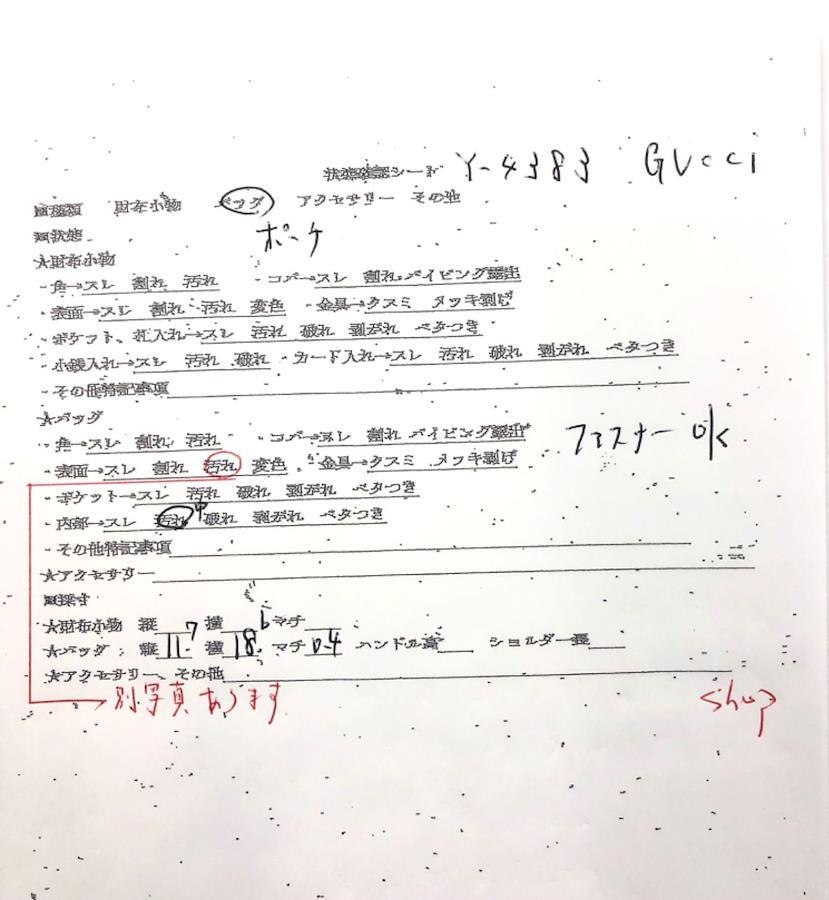 状態確認シート Y-4383 GUCCI
種類 財布小物 バッグ アクセサリー その他
状態 ポーチ
★財布小物
・角→スレ 割れ 汚れ ・コバ→スレ 割れ パイピング露出
・表面→スレ 割れ 汚れ 変色 ・金具→クスミ メッキ剥げ
・ポケット、札入れ→スレ 汚れ 破れ 剥がれ ベタつき
・小銭入れ→スレ 汚れ 破れ ・カード入れ→スレ 汚れ 破れ 剥がれ ベタつき
・その他特記事項
★バッグ
・角→スレ 割れ 汚れ ・コバ→スレ 割れ パイピング露出 ファスナー ok
・表面→スレ 割れ 汚れ 変色 ・金具→クスミ メッキ剥げ
・ポケット→スレ 汚れ 破れ 剥がれ ベタつき
・内部→スレ 汚れ 破れ 剥がれ ベタつき
・その他特記事項
★アクセサリー
採寸
★財布小物 縦 横 マチ
★バッグ: 縦 11.7 横 18.6 マチ 0.4 ハンドル高 ショルダー長
★アクセサリー、その他
別写真あります shop